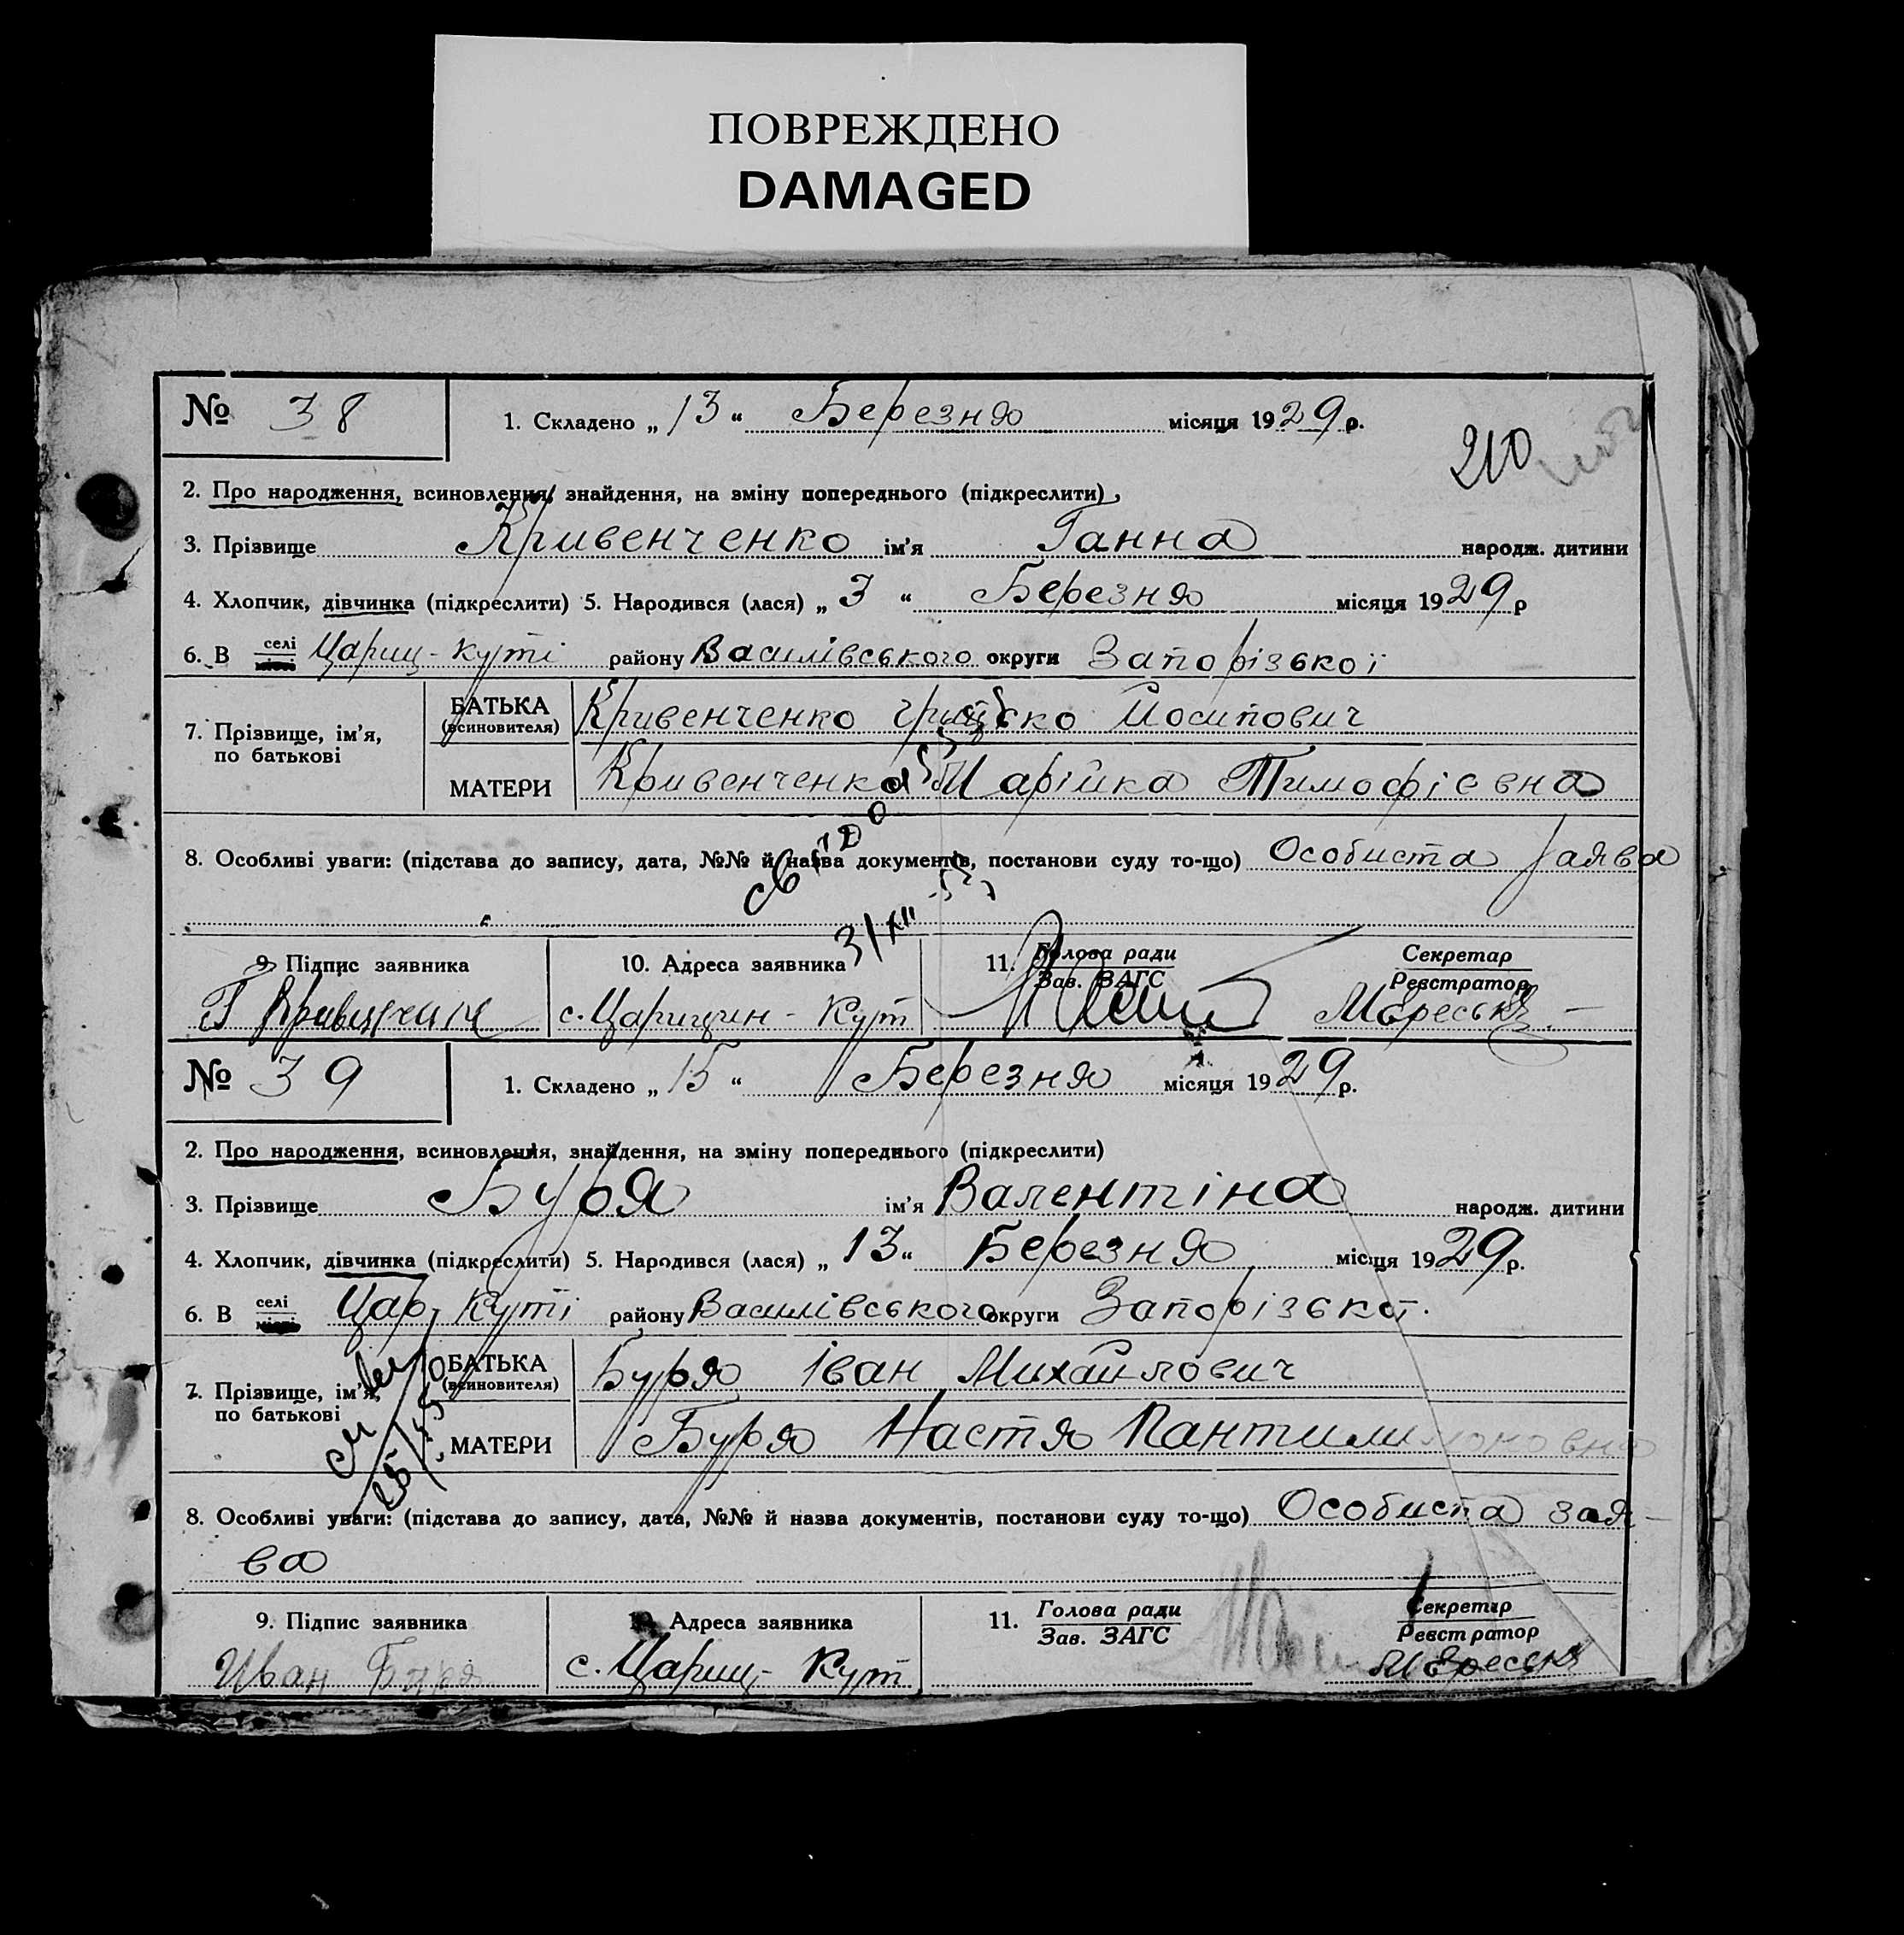 ПОВРЕЖДЕНО
DAMAGED
№ 38
1. Складено „ 13 “ Березня місяця 1929 р.
210
2. Про народження, всиновлення, знайдення, на зміну попереднього (підкреслити),
3. Прізвище Кривенченко ім’я Ганна народж. дитини
4. Хлопчик, дівчинка (підкреслити) 5. Народився (лася) „ 3 “ Березня місяця 1929 р
6. В селі Цариц-Куті району Василівського округи Запорізької
7. Прізвище, ім’я, по батькові
БАТЬКА (всиновителя) Кривенченко Грицько Йосипович
МАТЕРИ Кривенченко Марійка Тимофієвна
8. Особливі уваги: (підстава до запису, дата, №№ й назва документів, постанови суду то-що) Особиста заява
св
3/XII
9. Підпис заявника
10. Адреса заявника
11. Голова ради
Зав. ЗАГС
Секретар
Реєстратор
с. Царицин-Кут
№ 39
1. Складено „ 15 “ Березня місяця 1929 р.
2. Про народження, всиновлення, знайдення, на зміну попереднього (підкреслити)
3. Прізвище Буря ім’я Валентіна народж. дитини
4. Хлопчик, дівчинка (підкреслити) 5. Народився (лася) „ 13 “ Березня місяця 1929 р.
6. В селі Цар. Куті району Василівського округи Запорізької.
7. Прізвище, ім’я, по батькові
БАТЬКА (всиновителя) Буря Іван Михайлович
МАТЕРИ Буря Настя Пантилимоновна
8. Особливі уваги: (підстава до запису, дата, №№ й назва документів, постанови суду то-що) Особиста зая-
ва
9. Підпис заявника
10. Адреса заявника
11. Голова ради
Зав. ЗАГС
Секретар
Реєстратор
Иван Буря
с. Цариц-Кут